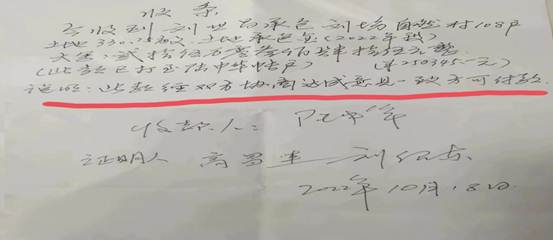 收条
今收到刘世昌承包刘场自然村108户
土地330.26亩,土地承包金(2022年度)
大写:贰拾伍万零叁佰肆拾伍元整
(此款已打至陆中华帐户) (¥250345元)
说明:此款经双方协商达成意见一致方可付款.
收款人:
证明人 高
2022年10月18日